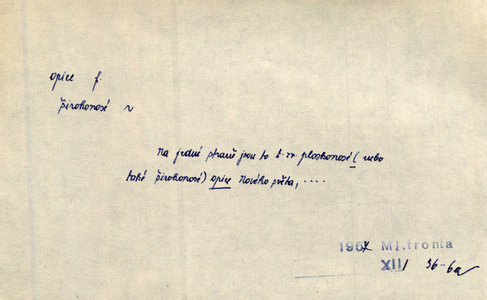 opice f.
širokonosé ~
Na jedné straně jsou to t. zv. ploskonosé (nebo
také širokonosé) opice Nového světa, ....
1957 Ml.fronta
XII/ 36-6a